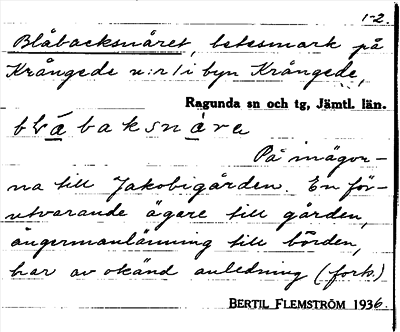 1-2.
Blåbacksnåret, betesmark på
Krångede n:r 1 i byn Krångede,
Ragunda sn och tg, Jämtl. län.
På inägor-
na till Jakobigården. En för-
utvarande ägare till gården,
ångermanlänning till börden,
har av okänd anledning (forts.)
BERTIL FLEMSTRÖM 1936.